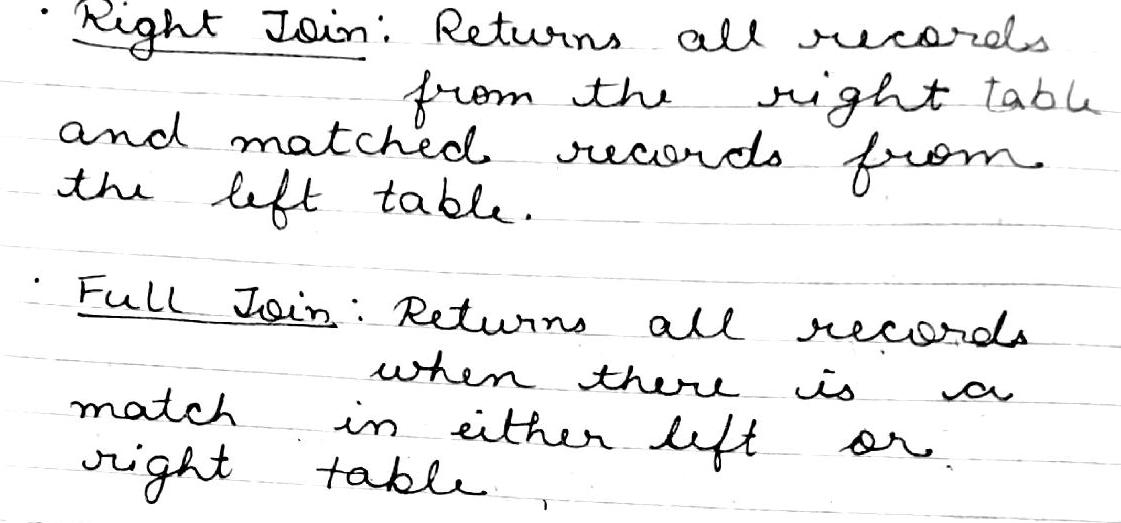 · Right Join: Returns all records
from the right table
and matched records from
the left table.
· Full Join: Returns all records
when there is a
match in either left or
right table.